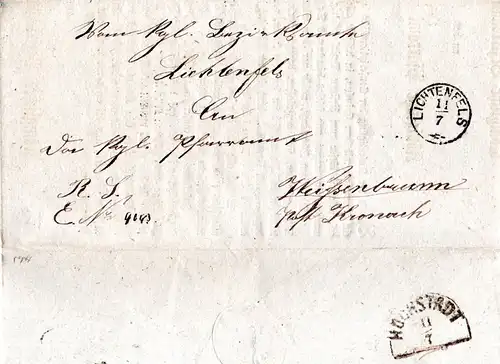 Vom Kgl. Bezirksamte
Lichtenfels
An
Das Kgl. Pfarramt
R. S.
E. No
Weissenbrunn
Post Kronach
LICHTENFELS
11
7
HOCHSTADT
11
7